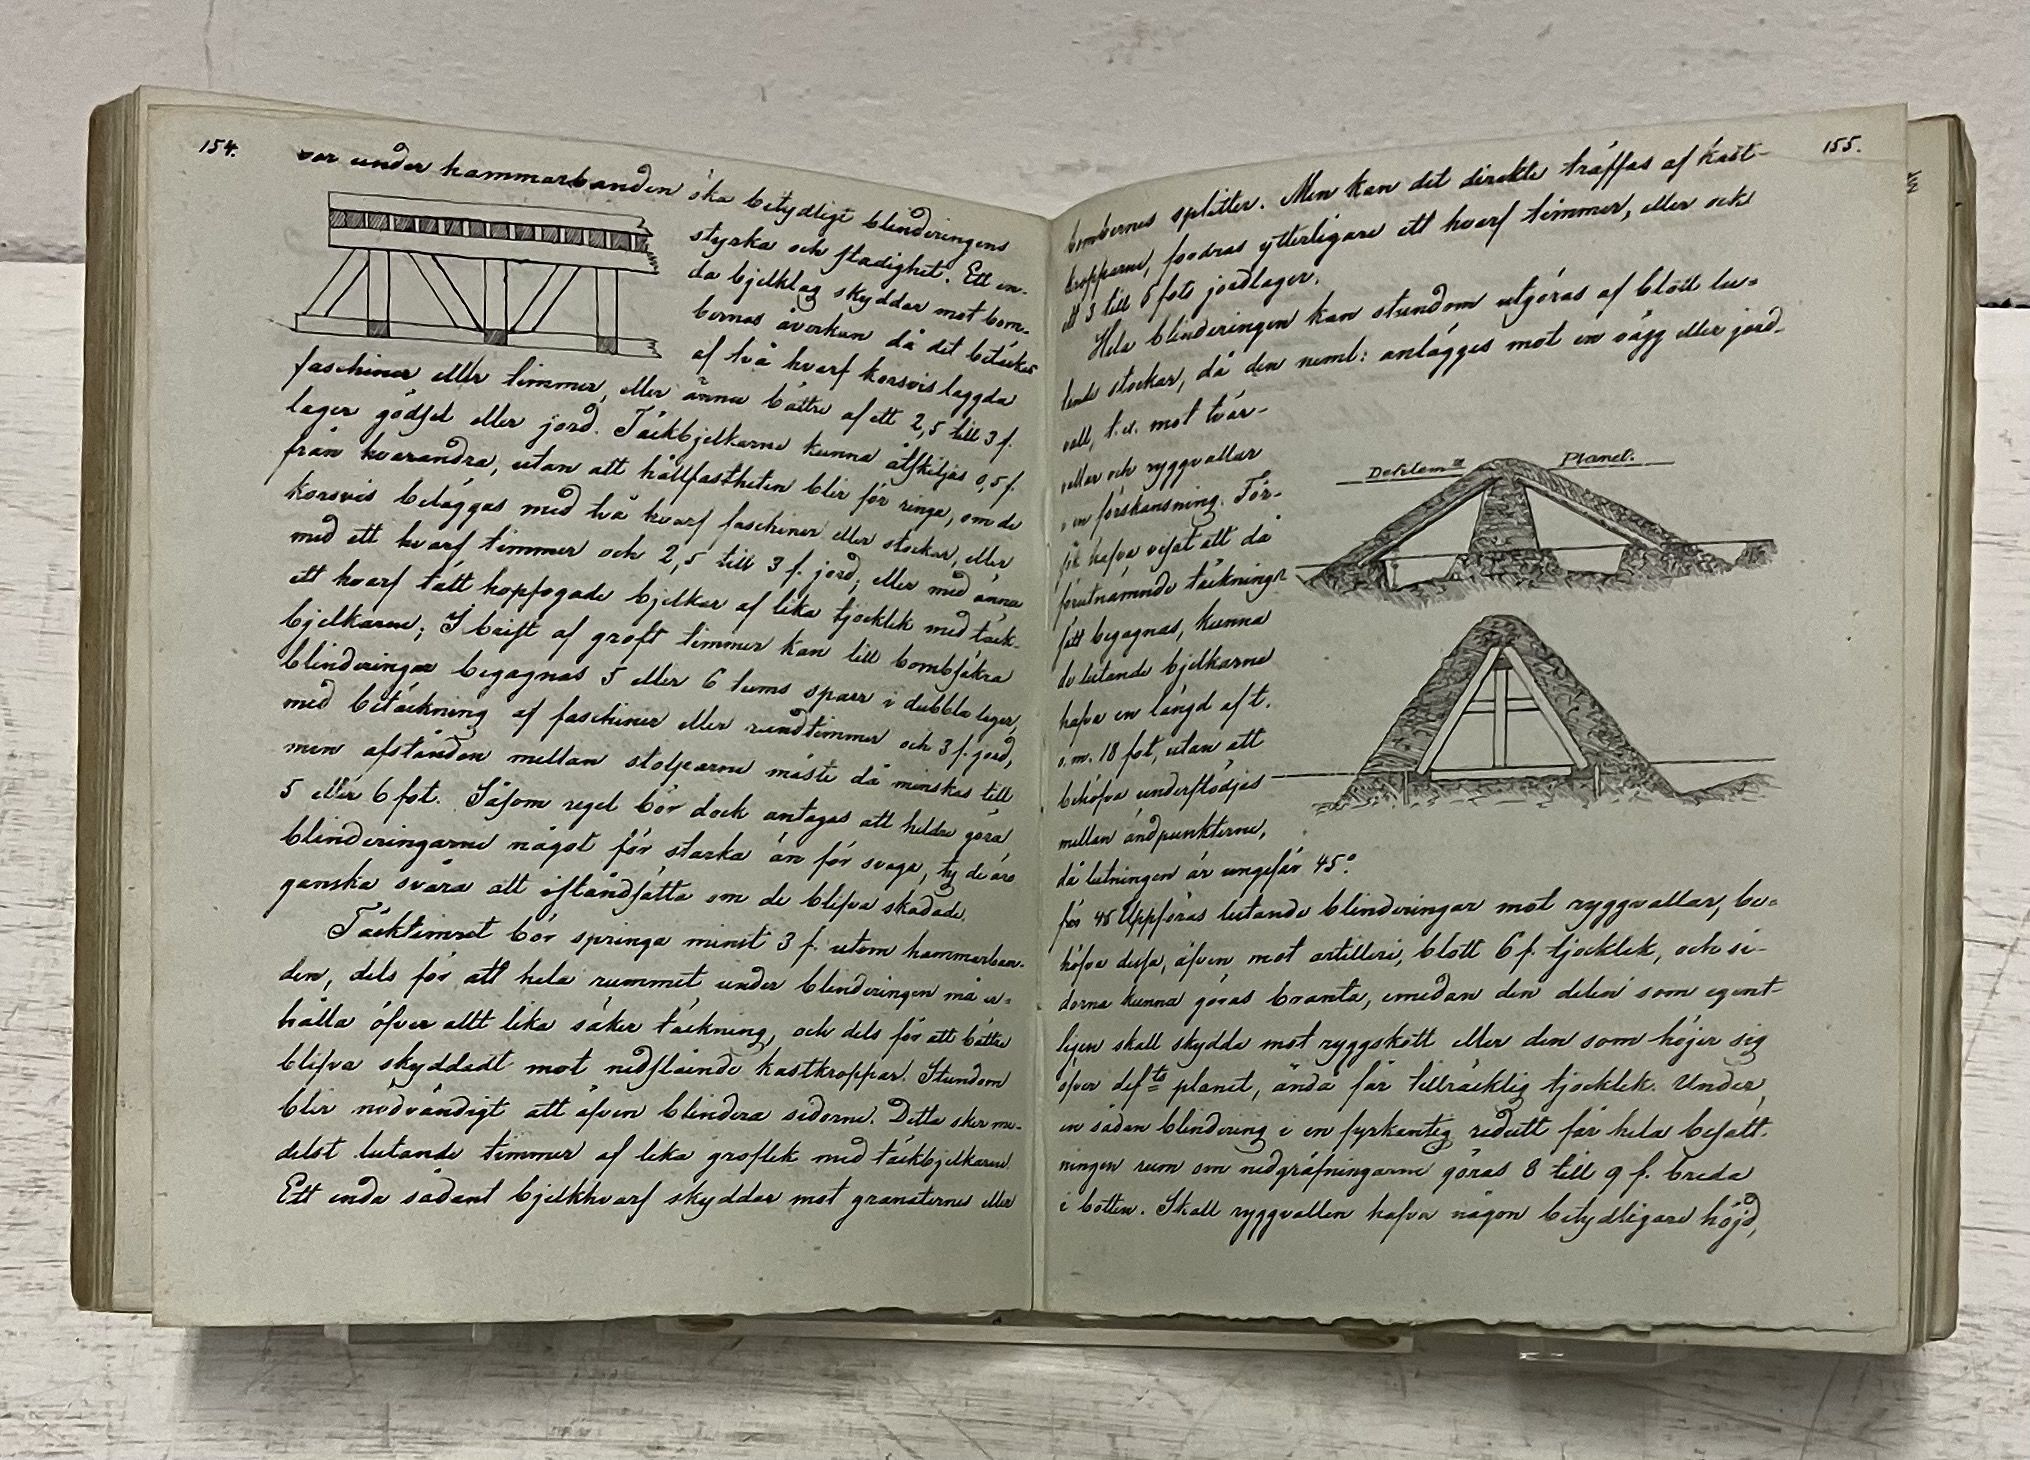 154.
vor under hammarbanden öka betydligt blinderingens
styrka och stadighet. Ett en-
da bjelklag skyddar mot bom-
bernas åverkan då det betäckes
af två hvarf korsvis laggda
faschiner eller timmer, eller ännu bättre af ett 2,5 till 3 f.
lager gödsel eller jord. Täckbjelkarne kunna åtskiljas 0,5 f.
från hvarandra, utan att hållfastheten blir för ringa, om de
korsvis beläggas med två hvarf faschiner eller stockar, eller
med ett hvarf timmer och 2,5 till 3 f. jord; eller med ännu
ett hvarf tätt hopfogade bjelkar af lika tjocklek med täck-
bjelkarne; I brist af groft timmer kan till bombsäkra
blinderingar begagnas 5 eller 6 tums sparr i dubbla lager,
med betäckning af faschiner eller rundtimmer och 3 f. jord,
men afstånden mellan stolparne måste då minskas till
5 eller 6 fot. Såsom regel bör dock antagas att heldre göra
blinderingarne något för starka än för svaga, ty de äro
ganska svåra att iståndsätta om de blifva skadade.
Täcktimret bör springa minst 3 f. utom hammarban-
den, dels för att hela rummet under blinderingen må er-
hålla öfver allt lika säker täckning, och dels för att bättre
blifva skyddadt mot nedslående kastkroppar. Stundom
blir nödvändigt att äfven blindera sidorne. Detta sker me-
delst lutande timmer af lika groflek med täckbjelkarne.
Ett enda sådant bjelkhvarf skyddar mot granaternes eller
155.
bombernes splitter. Men kan det direkte träffas af kast-
kropparne, fordras ytterligare ett hvarf timmer, eller ock
ett 3 till 5 fots jordlager.
Hela blinderingen kan stundom utgöras af blott lu-
tande stockar, då den neml: anlägges mot en vägg eller jord-
vall, t.ex. mot tvär-
vallar och ryggvallar
i en förskansning. För-
sök hafva visat att då
förutnämnde täckning
sätt begagnas, kunna
de lutande bjelkarne
hafva en längd af t.
o.m. 18 fot, utan att
behöfva understödjas
mellan ändpunkterne,
då lutningen är ungefär 45°.
för 45 Uppföras lutande blinderingar mot ryggvallar, be-
höfva dessa, äfven mot artilleri, blott 6 f. tjocklek, och si-
dorna kunna göras branta, emedan den delen som egent-
ligen skall skydda mot ryggskott eller den som höjer sig
öfver def=ts planet, ändå får tillräcklig tjocklek. Under
en sådan blindering i en fyrkantig redutt får hela besätt-
ningen rum om nedgräfningarne göras 8 till 9 f. breda
i botten. Skall ryggvallen hafva någon betydligare höjd,
Defilem=s Planet.